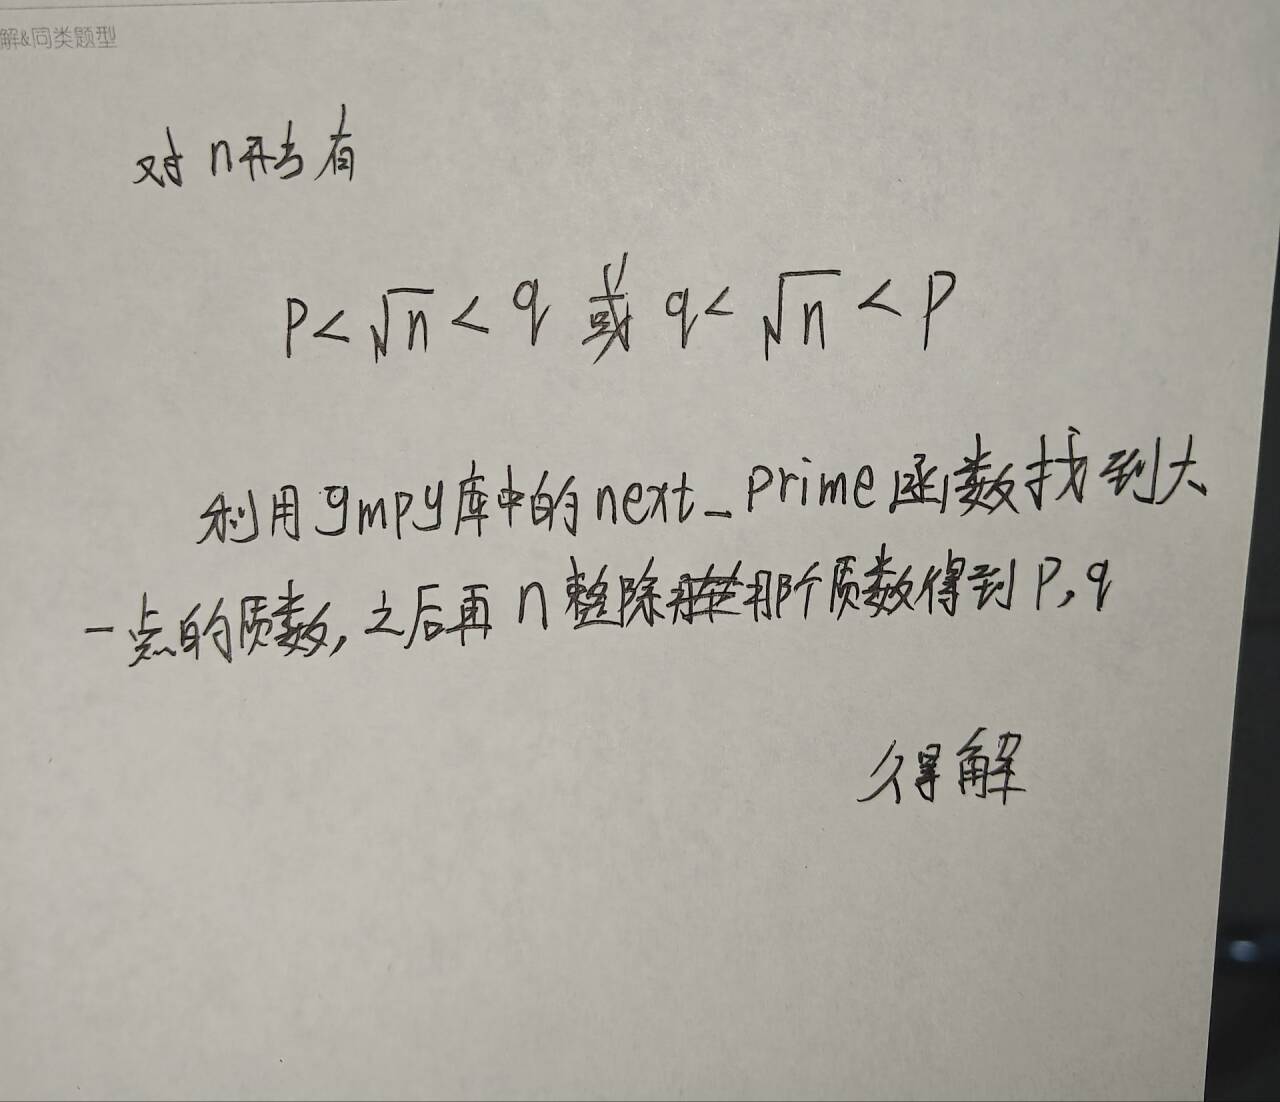 解&同类题型
对n开方有
P<√n<q 或 q<√n<P
利用gmpy库中的next_prime函数找到大
一点的质数,之后再n整除那个质数得到P,q
得解